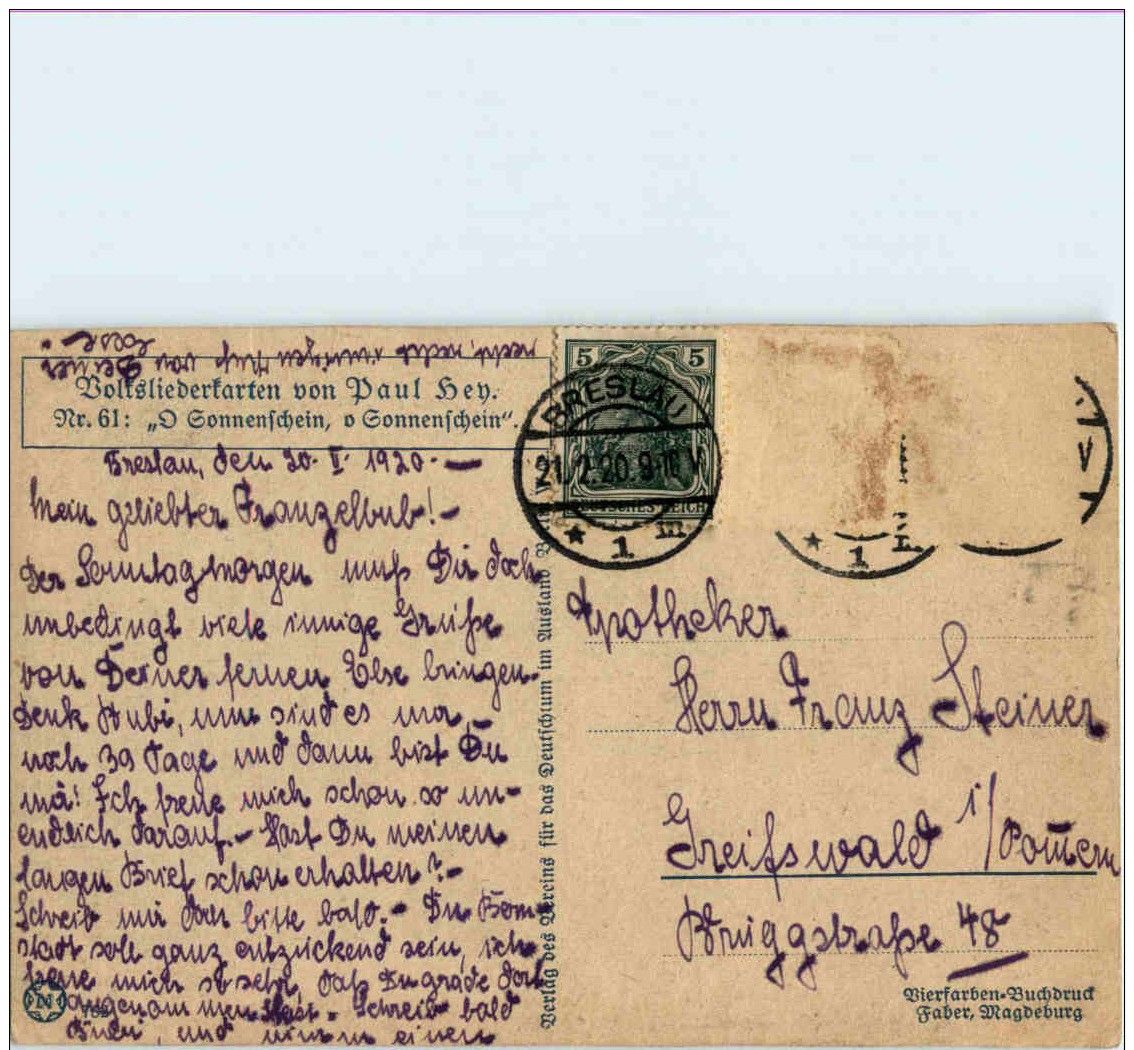 Volksliederkarten von Paul Hey.
Nr. 61: „O Sonnenschein, o Sonnenschein“.
Breslau, den 20. II. 1920.—
Mein geliebter Franzelbub!—
Der Sonntagmorgen muß Dir doch
unbedingt viele innige Grüße
von Deiner fernen Else bringen.
Denk Bubi, nun sind es nur
noch 39 Tage und dann bist Du
Ich freue mich schon so un-
endlich darauf.— Hast Du meinen
langen Brief schon erhalten?—
Schreib mir doch bitte bald.—
stadt soll ganz entzückend sein, ich
freue mich so sehr, daß Du grade dort
angenommen hast.— Schreib bald
Bubi, und nimm einen
recht, recht innigen Kuß von Deiner
Else
5 5
DEUTSCHES REICH
BRESLAU
21. 2. 20. 9-10 V
* 1 m
V
* 1
Verlag des Vereins für das Deutschtum im Ausland
Apotheker
Herrn Franz Steiner
Greifswald i/Pomern
Bruggstraße 48
Vierfarben-Buchdruck
Faber, Magdeburg